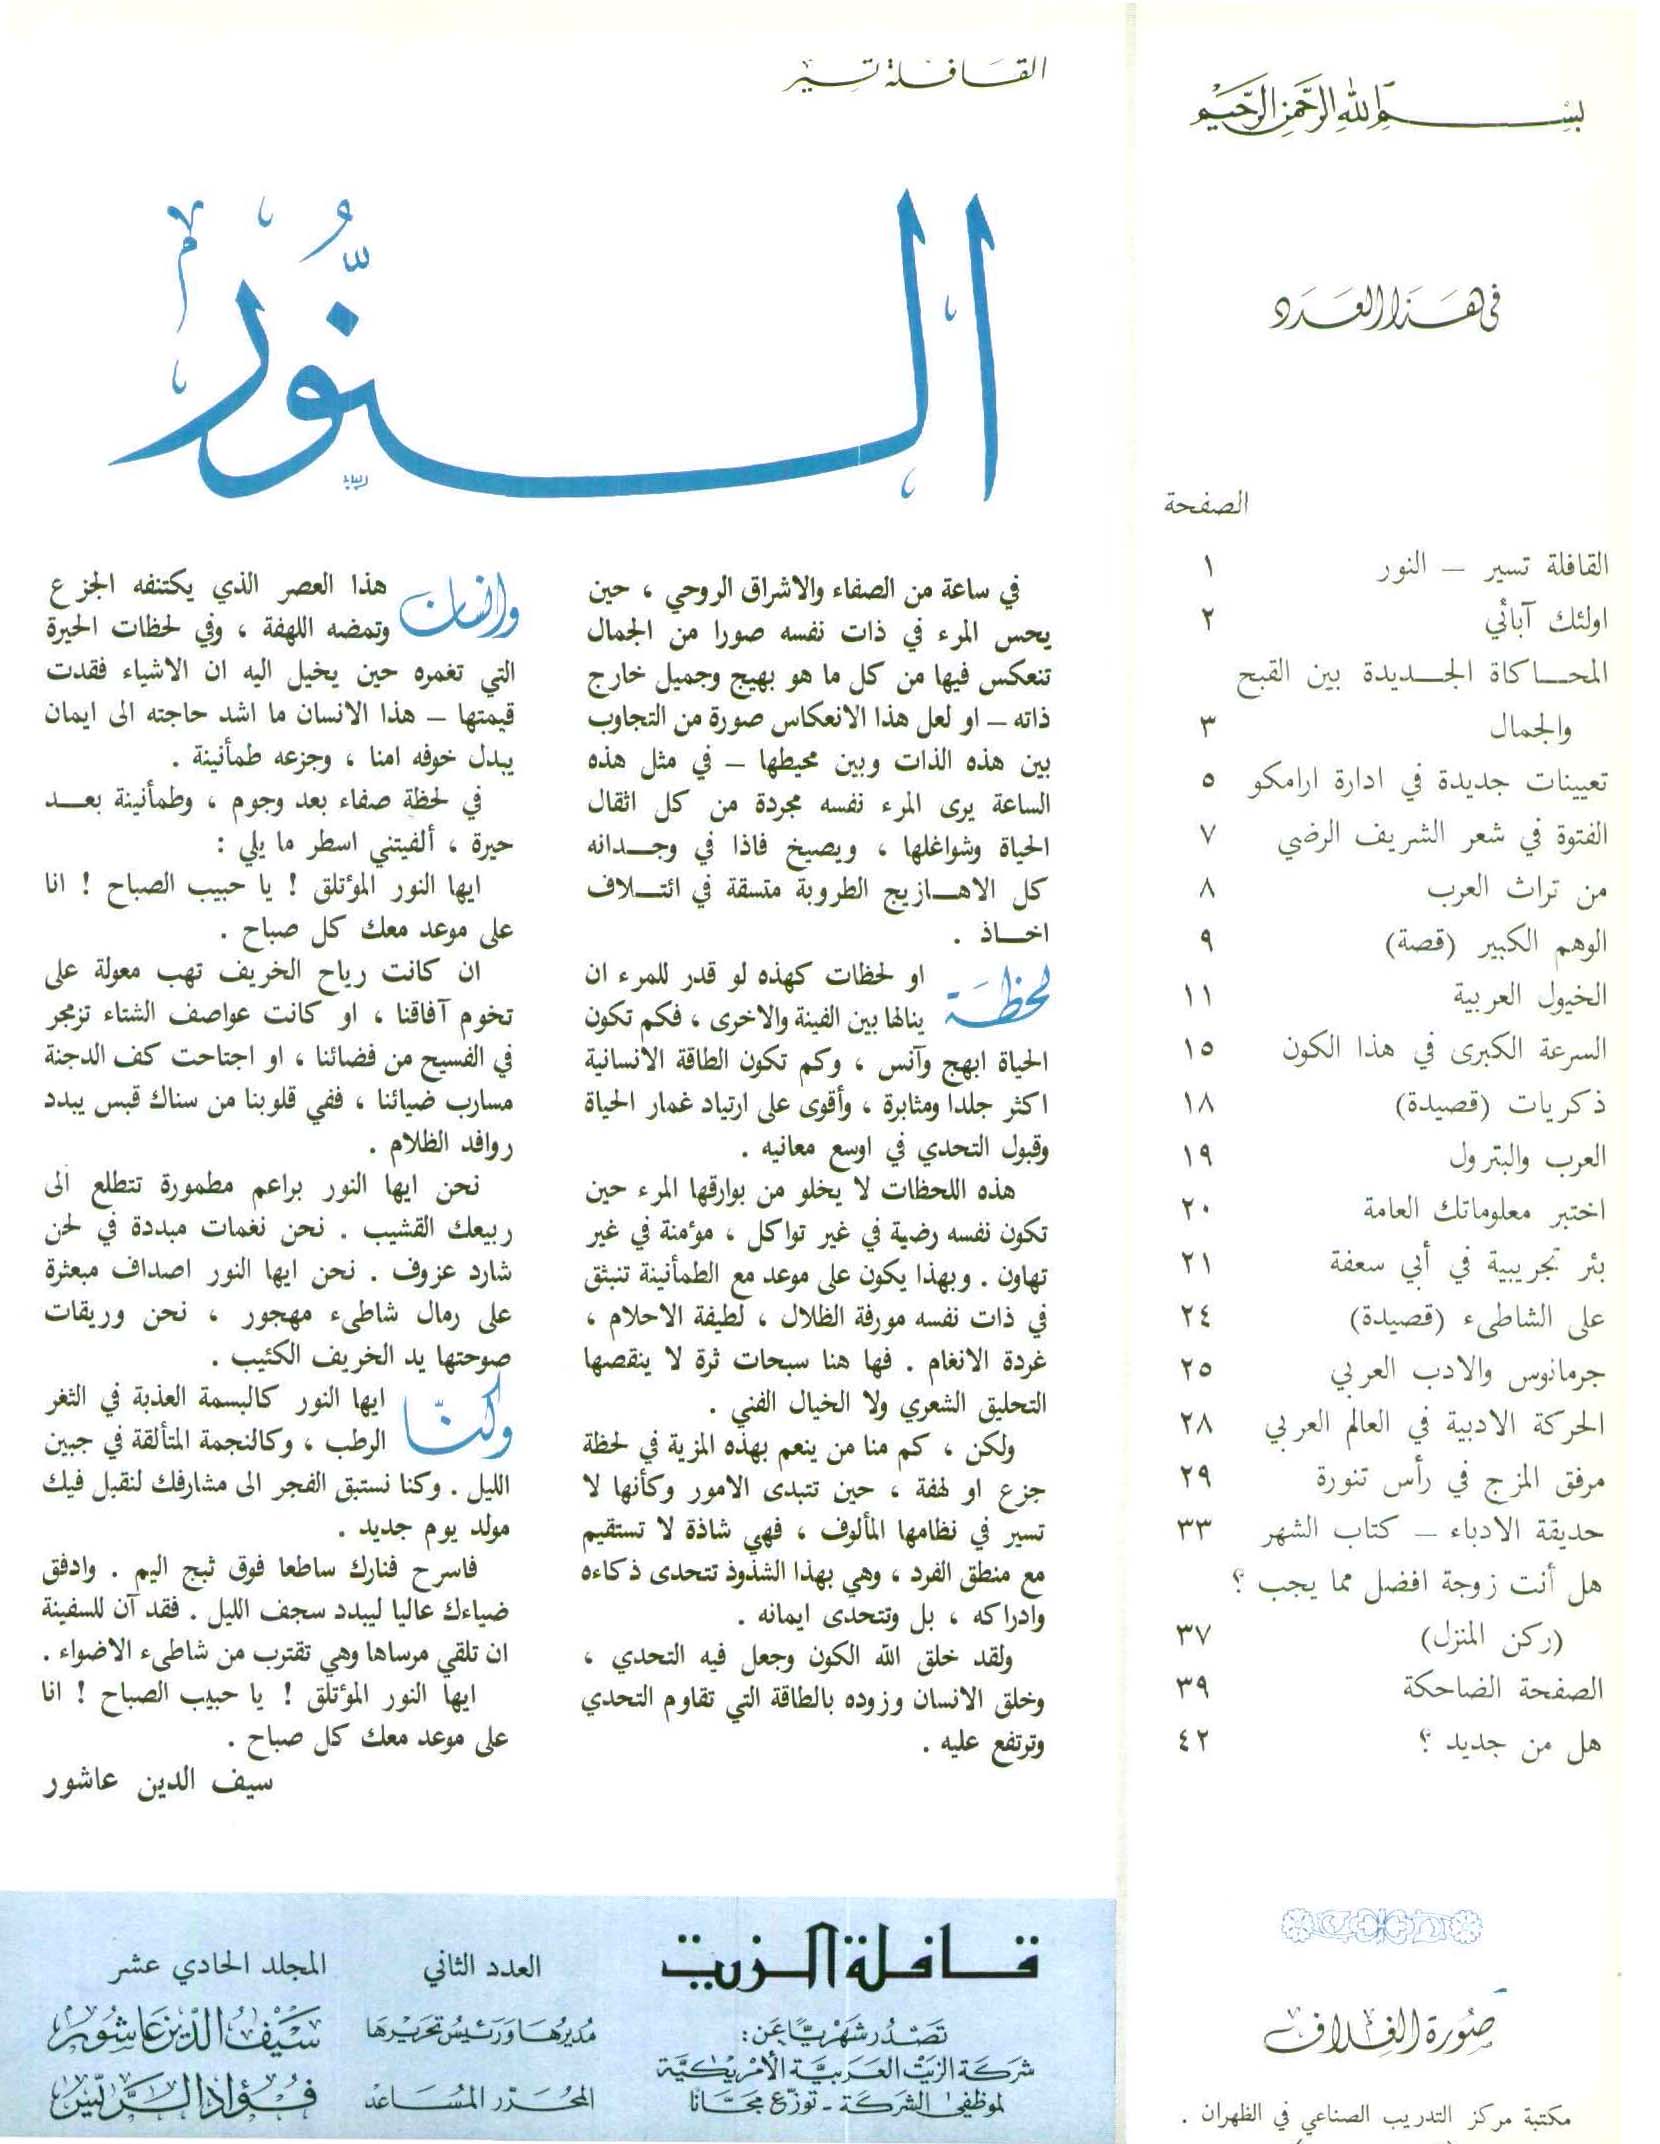 بسم الله الرحمن الرحيم
في هذا العدد
الصفحة
القافلة تسير – النور ١
اولئك آبائي ٢
المحـاكاة الجـديدة بين القبح
والجمال ٣
تعيينات جديدة في ادارة ارامكو ٥
الفتوة في شعر الشريف الرضي ٧
من تراث العرب ٨
الوهم الكبير (قصة) ٩
الخيول العربية ١١
السرعة الكبرى في هذا الكون ١٥
ذكريات (قصيدة) ١٨
العرب والبترول ١٩
اختبر معلوماتك العامة ٢٠
بئر تجريبية في أبي سعفة ٢١
على الشاطىء (قصيدة) ٢٤
جرمانوس والادب العربي ٢٥
الحركة الادبية في العالم العربي ٢٨
مرفق المزج في رأس تنورة ٢٩
حديقة الادباء – كتاب الشهر ٣٣
هل أنت زوجة افضل مما يجب ؟
(ركن المنزل) ٣٧
الصفحة الضاحكة ٣٩
هل من جديد ؟ ٤٢
صورة الغلاف
مكتبة مركز التدريب الصناعي في الظهران .
القافلة تسير
النُّور
في ساعة من الصفاء والاشراق الروحي ، حين
يحس المرء في ذات نفسه صورا من الجمال
تنعكس فيها من كل ما هو بهيج وجميل خارج
ذاته – او لعل هذا الانعكاس صورة من التجاوب
بين هذه الذات وبين محيطها – في مثل هذه
الساعة يرى المرء نفسه مجردة من كل اثقال
الحياة وشواغلها ، ويصيخ فاذا في وجـدانه
كل الاهـازيج الطروبة متسقة في ائتـلاف
اخـاذ .
لحظة او لحظات كهذه لو قدر للمرء ان
ينالها بين الفينة والاخرى ، فكم تكون
الحياة ابهج وآنس ، وكم تكون الطاقة الانسانية
اكثر جلدا ومثابرة ، وأقوى على ارتياد غمار الحياة
وقبول التحدي في اوسع معانيه .
هذه اللحظات لا يخلو من بوارقها المرء حين
تكون نفسه رضية في غير تواكل ، مؤمنة في غير
تهاون . وبهذا يكون على موعد مع الطمأنينة تنبثق
في ذات نفسه مورفة الظلال ، لطيفة الاحلام ،
غردة الانغام . فها هنا سبحات ثرة لا ينقصها
التحليق الشعري ولا الخيال الفني .
ولكن ، كم منا من ينعم بهذه المزية في لحظة
جزع او لهفة ، حين تتبدى الامور وكأنها لا
تسير في نظامها المألوف ، فهي شاذة لا تستقيم
مع منطق الفرد ، وهي بهذا الشذوذ تتحدى ذكاءه
وادراكه ، بل وتتحدى ايمانه .
ولقد خلق الله الكون وجعل فيه التحدي ،
وخلق الانسان وزوده بالطاقة التي تقاوم التحدي
وترتفع عليه .
وانسان هذا العصر الذي يكتنفه الجزع
وتمضه اللهفة ، وفي لحظات الحيرة
التي تغمره حين يخيل اليه ان الاشياء فقدت
قيمتها – هذا الانسان ما اشد حاجته الى ايمان
يبدل خوفه امنا ، وجزعه طمأنينة .
في لحظة صفاء بعد وجوم ، وطمأنينة بعـد
حيرة ، ألفيتني اسطر ما يلي :
ايها النور المؤتلق ! يا حبيب الصباح ! انا
على موعد معك كل صباح .
ان كانت رياح الخريف تهب معولة على
تخوم آفاقنا ، او كانت عواصف الشتاء تزمجر
في الفسيح من فضائنا ، او اجتاحت كف الدجنة
مسارب ضيائنا ، ففي قلوبنا من سناك قبس يبدد
روافد الظلام .
نحن ايها النور براعم مطمورة تتطلع الى
ربيعك القشيب . نحن نغمات مبددة في لحن
شارد عزوف . نحن ايها النور اصداف مبعثرة
على رمال شاطىء مهجور ، نحن وريقات
صوحتها يد الخريف الكئيب .
وكنّا ايها النور كالبسمة العذبة في الثغر
الرطب ، وكالنجمة المتألقة في جبين
الليل . وكنا نستبق الفجر الى مشارفك لنقبل فيك
مولد يوم جديد .
فاسرح فنارك ساطعا فوق ثبج اليم . وادفق
ضياءك عاليا ليبدد سجف الليل . فقد آن للسفينة
ان تلقي مرساها وهي تقترب من شاطىء الاضواء .
ايها النور المؤتلق ! يا حبيب الصباح ! انا
على موعد معك كل صباح .
سيف الدين عاشور
قافلة الزيت
تصدر شهريًا عن:
شركة الزيت العربية الأمريكية
لموظفي الشركة - توزع مجانا
العدد الثاني المجلد الحادي عشر
مديرها ورئيس تحريرها سيف الدين عاشور
المحرر المساعد فؤاد الريس